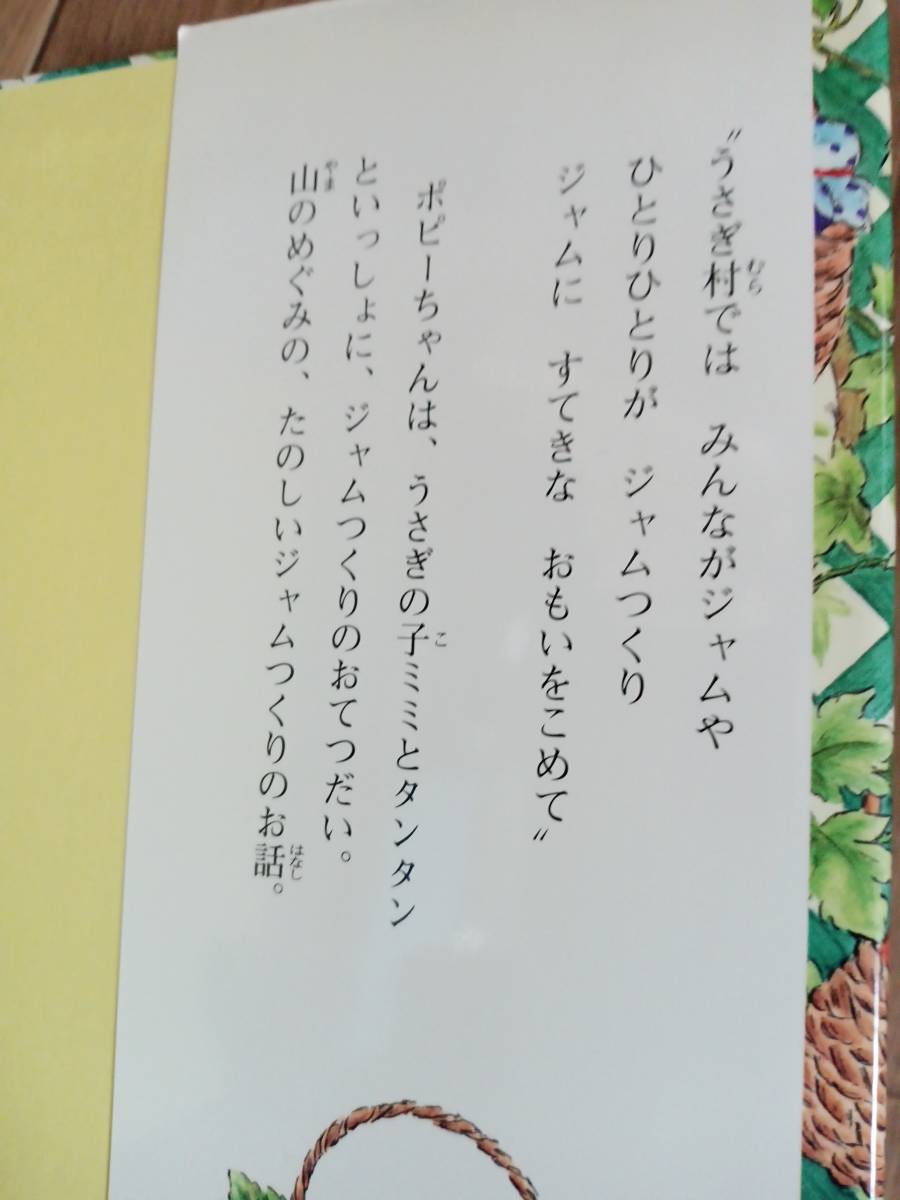 〝うさぎ村では　みんながジャムや
ひとりひとりが　ジャムつくり
ジャムに　すてきな　おもいをこめて〟
ポピーちゃんは、うさぎの子ミミとタンタン
といっしょに、ジャムつくりのおてつだい。
山のめぐみの、たのしいジャムつくりのお話。